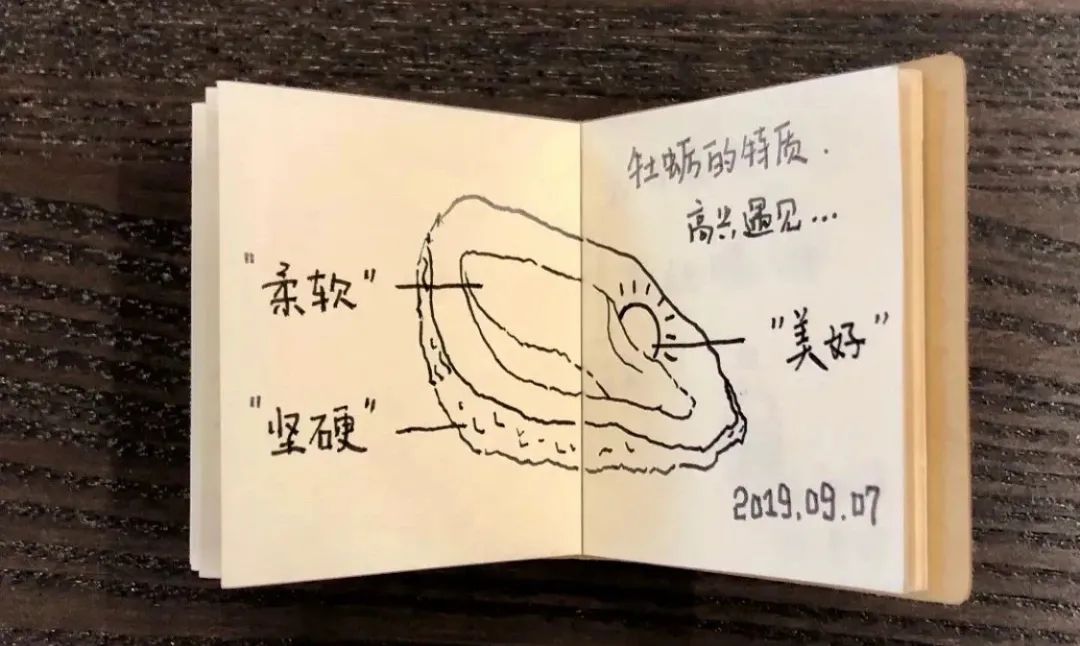 牡蛎的特质.
高兴遇见...
"柔软"
"美好"
"坚硬"
2019.09.07